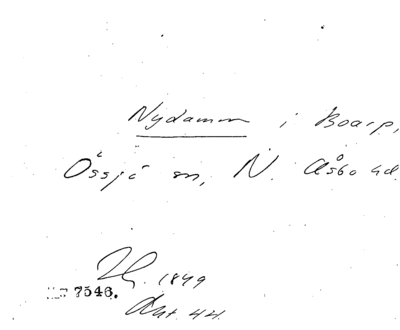 Nydamm i Boarp,
Össjö sn, N. Åsbo hd.
1849
7546.
Akt. 44.